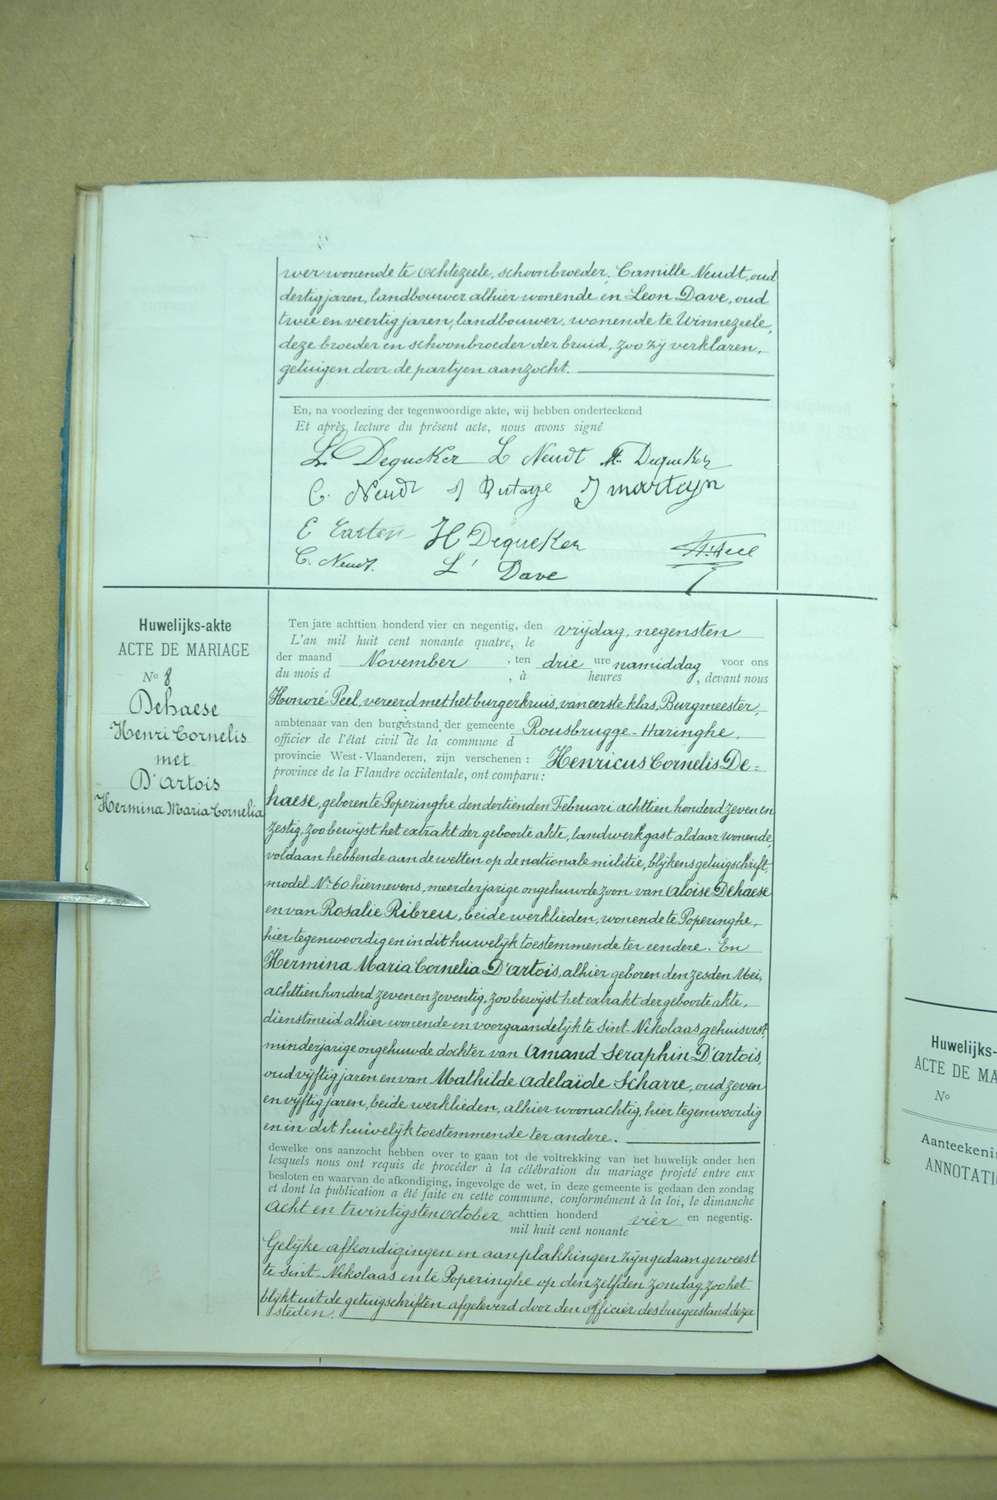 wer wonende te Ochtezeele, schoonbroeder, Camille Neudt, oud
dertig jaren, landbouwer alhier wonende en Leon Dave, oud
twee en veertig jaren, landbouwer, wonende te Winnezeele,
deze broeder en schoonbroeder der bruid, zoo zy verklaren,
getuigen door de partyen aanzocht.
En, na voorlezing der tegenwoordige akte, wij hebben onderteekend
Et après lecture du présent acte, nous avons signé
L. Dequeker L Neudt M. Dequeker
C. Neudt Rutaye J marteyn
E H Dequeker
C. Neudt. L. Dave
Huwelijks-akte
ACTE DE MARIAGE
No 8
Dehaese
Henri Cornelis
met
D'artois
Hermina Maria Cornelia
Ten jare achttien honderd vier en negentig, den vrydag, negensten
L'an mil huit cent nonante quatre, le
der maand November, ten drie ure namiddag voor ons
du mois d , à heures , devant nous
Honoré Peel, vereerd met het burgerkruis, van eerste klas, Burgmeester,
ambtenaar van den burgerstand der gemeente Rousbrugge-Haringhe,
officier de l'état civil de la commune d
provincie West-Vlaanderen, zijn verschenen : Henricus Cornelis De=
province de la Flandre occidentale, ont comparu :
haese, geboren te Poperinghe den dertienden Februari achttien honderd zeven en
zestig, zoo bewyst het extrakt der geboorte akte, landwerkgast aldaar wonende,
voldaan hebbende aan de wetten op de nationale militie, blykens getuigschrift,
model No 60 hiernevens, meerderjarige ongehuwde zoon van Aloise Dehaese
en van Rosalie Ribreu, beide werklieden, wonende te Poperinghe,
hier tegenwoordig en in dit huwelyk toestemmende ter eendere. En
Hermina Maria Cornelia D'artois, alhier geboren den zesden Mei,
achttien honderd zeven en zeventig, zoo bewyst het extrakt der geboorte akte,
dienstmeid alhier wonende en voorgaandelyk te Sint-Nikolaas gehuisvest
minderjarige ongehuwde dochter van Amand Seraphin D'artois,
oud vyftig jaren en van Mathilde Adelaïde Scharre, oud zeven
en vyftig jaren, beide werklieden, alhier woonachtig, hier tegenwoordig
en in dit huwelyk toestemmende ter andere.
dewelke ons aanzocht hebben over te gaan tot de voltrekking van het huwelijk onder hen
lesquels nous ont requis de procéder à la célébration du mariage projeté entre eux
besloten en waarvan de afkondiging, ingevolge de wet, in deze gemeente is gedaan den zondag
et dont la publication a été faite en cette commune, conformément à la loi, le dimanche
acht en twintigsten october achttien honderd vier en negentig.
mil huit cent nonante
Gelyke afkondigingen en aanplakkingen zyn gedaan geweest
te Sint-Nikolaas en te Poperinghe op den zelfden zondag, zoo het
blykt uit de getuigschriften afgeleverd door den officier des burgerstand dezer
steden.
Huwelijks-
ACTE DE MA
No
Aanteekenin
ANNOTATIO